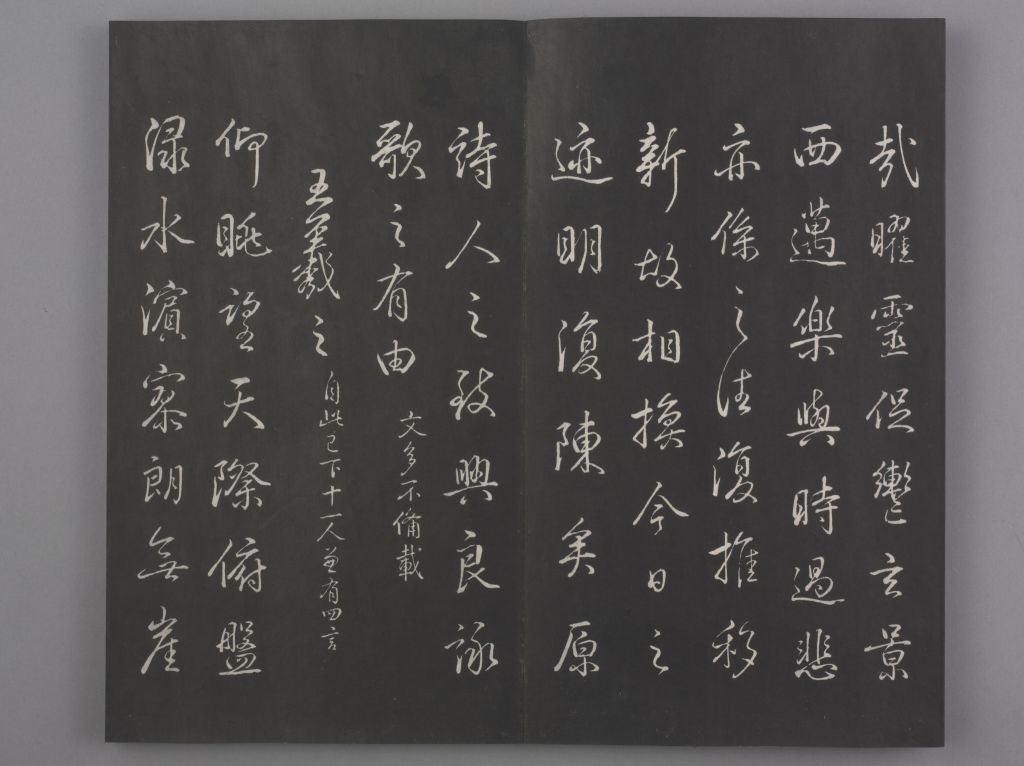 哉曜靈促轡玄景
西邁樂與時過悲
亦係之往復推移
新故相換今日之
迹明復陳矣原
詩人之致興良詠
歌之有由 文多不備載
王羲之 自此已下十一人並有四言
仰眺望天際俯盤
淥水濱寥朗無崖